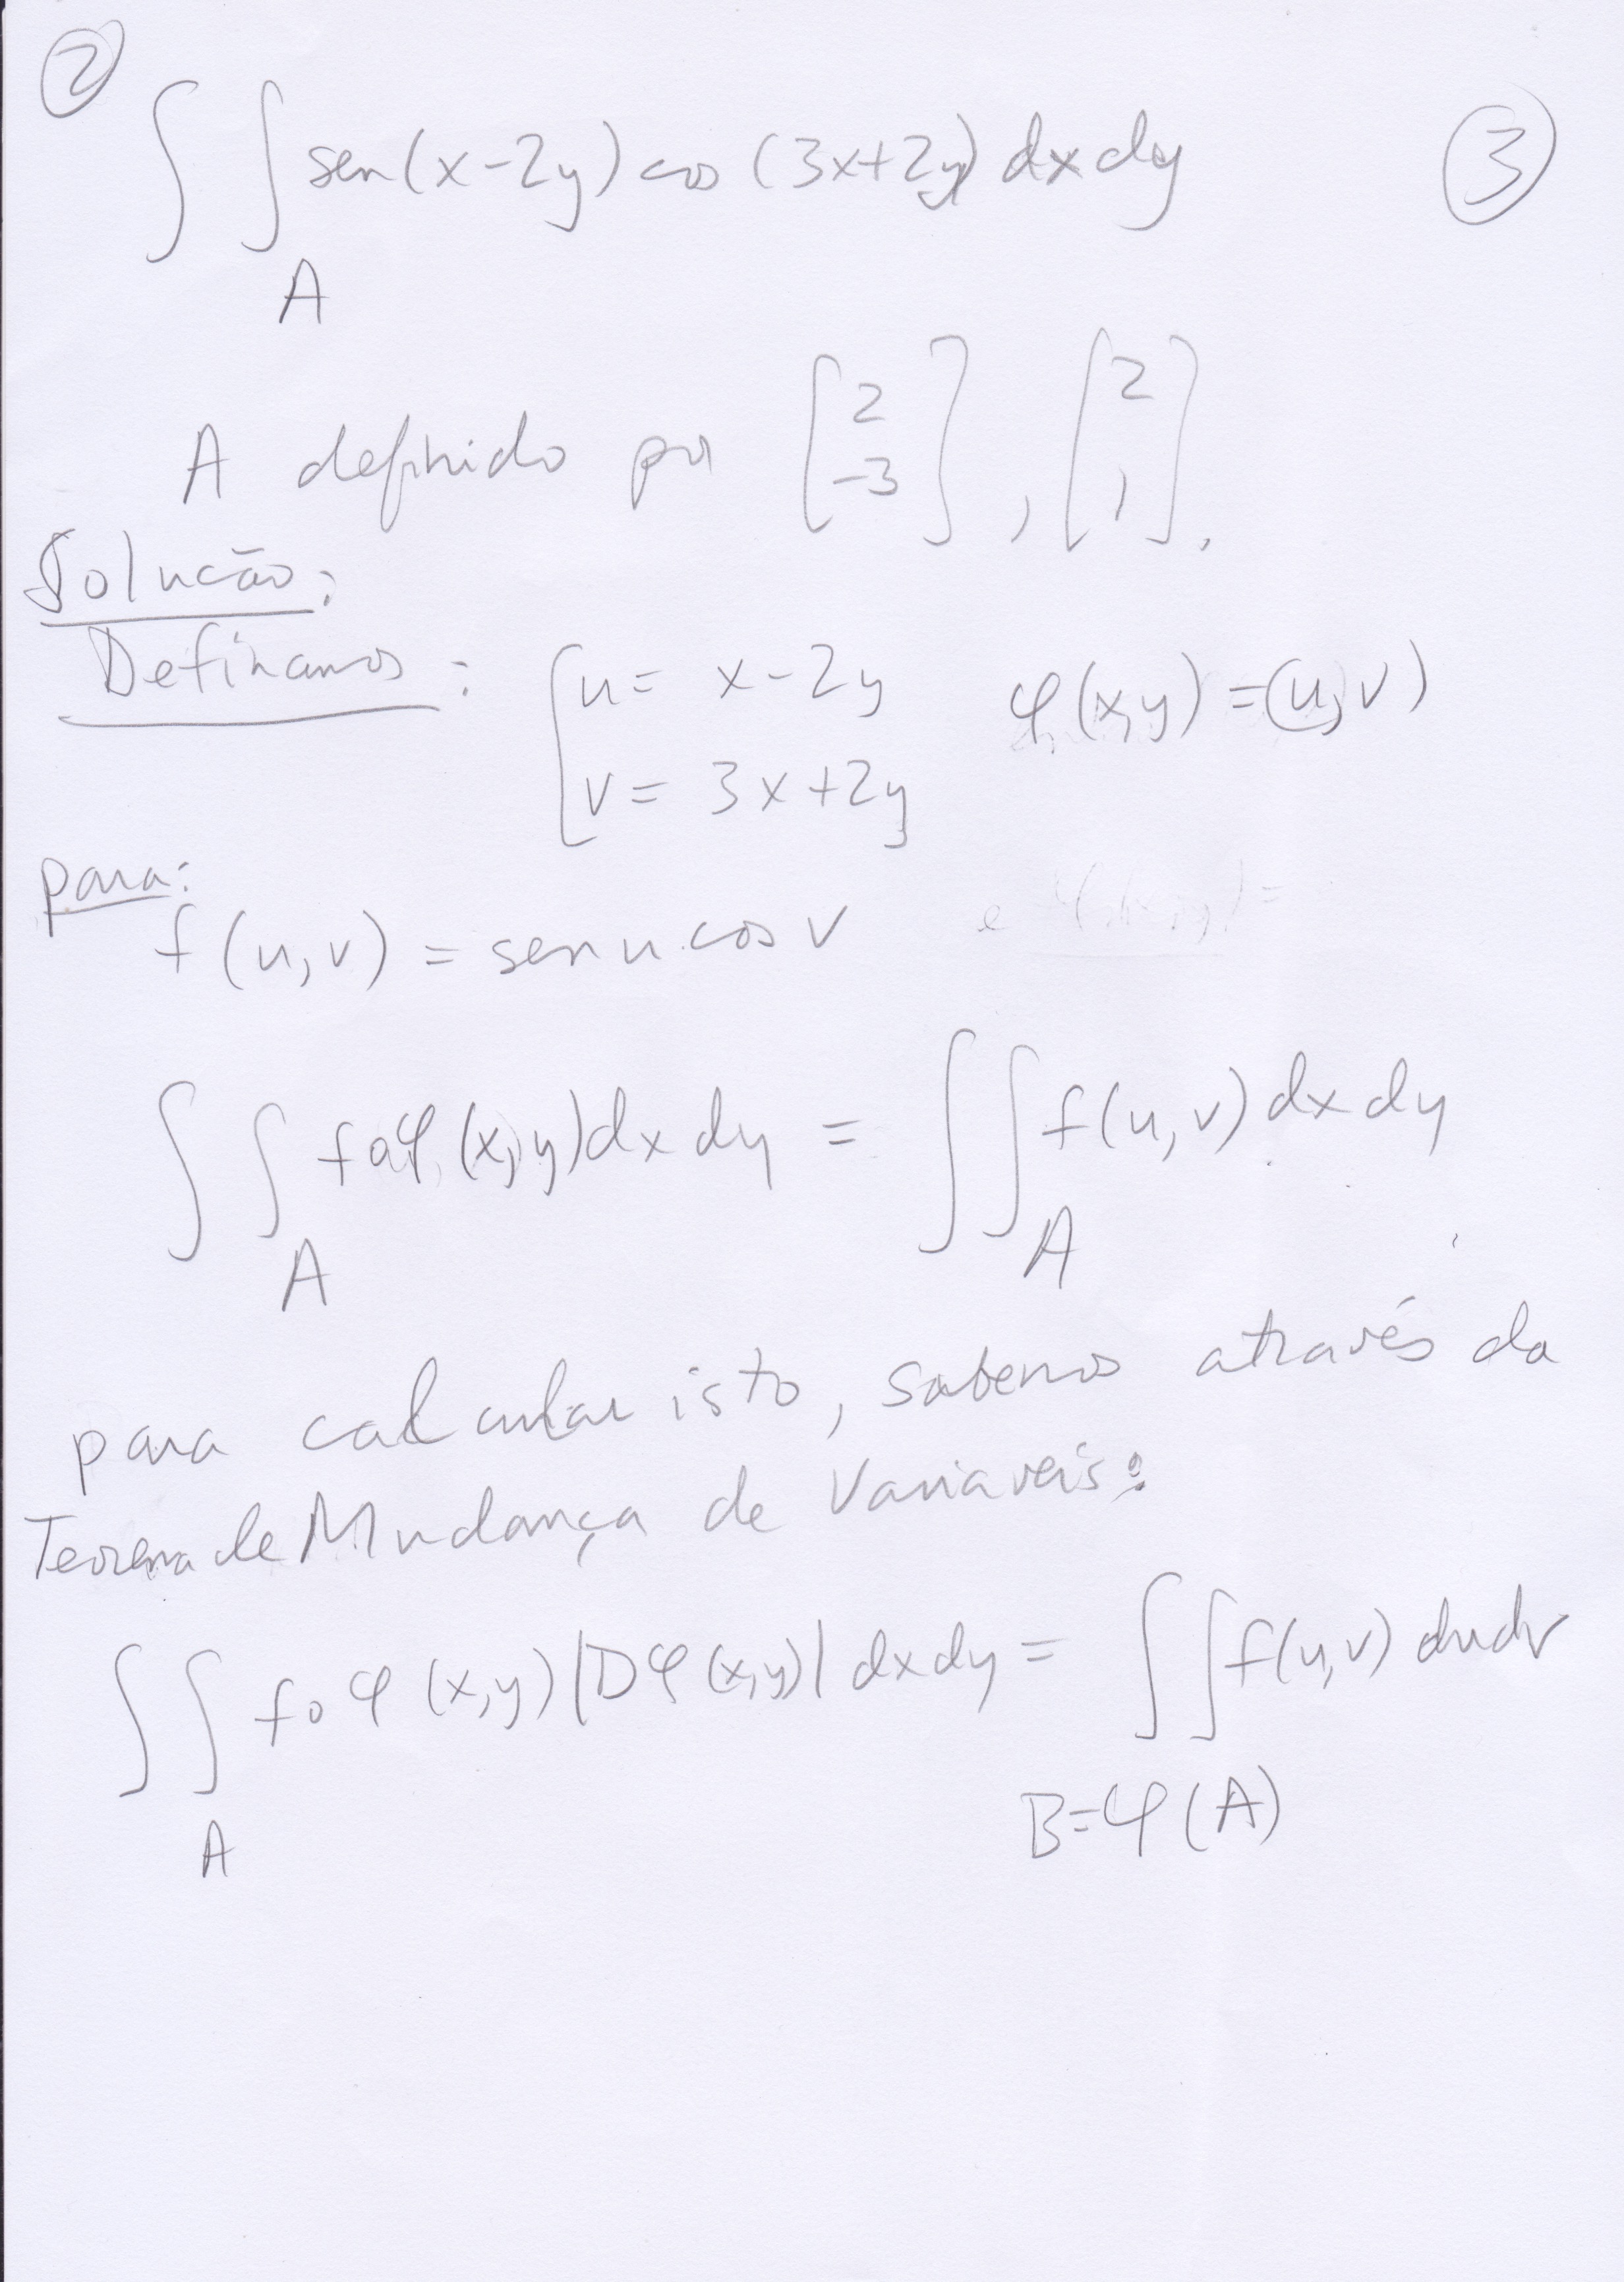 ②
∫∫_A sen(x-2y) cos(3x+2y) dx dy ③
A definido por [2 -3], [2 1].
Solucão:
Definamos: { u = x-2y φ(x,y) = (u,v)
v = 3x+2y
para:
f(u,v) = sen u.cos v
∫∫_A f∘φ(x,y)dx dy = ∫∫_A f(u,v) dx dy
para calcular isto, sabemos através da
Teorema de Mudança de Variaveis:
∫∫_A f∘φ(x,y)|Dφ(x,y)| dx dy = ∫∫_{B=φ(A)} f(u,v) du dv